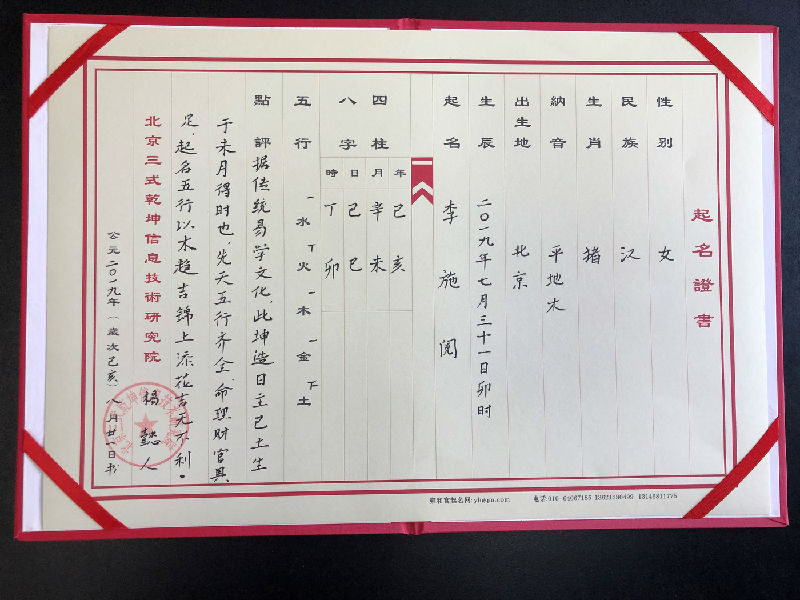 起名證書
性別 女
民族 汉
生肖 猪
納音 平地木
出生地 北京
生辰 二〇一九年七月三十一日卯时
起名 李施阅
四柱 年 月 日 時
八字 己亥 辛未 己巳 丁卯
五行 一水 丅火 一木 一金 下土
點評 据传统易学文化，此坤造日主己土生
于未月得时也，先天五行齐全，命理财官具
足，起名五行以木趋吉锦上添花吉无不利。
北京三式乾坤信息技術研究院
人
公元二〇一九年 歲次己亥 八月廿一日书
电话:010-64067156